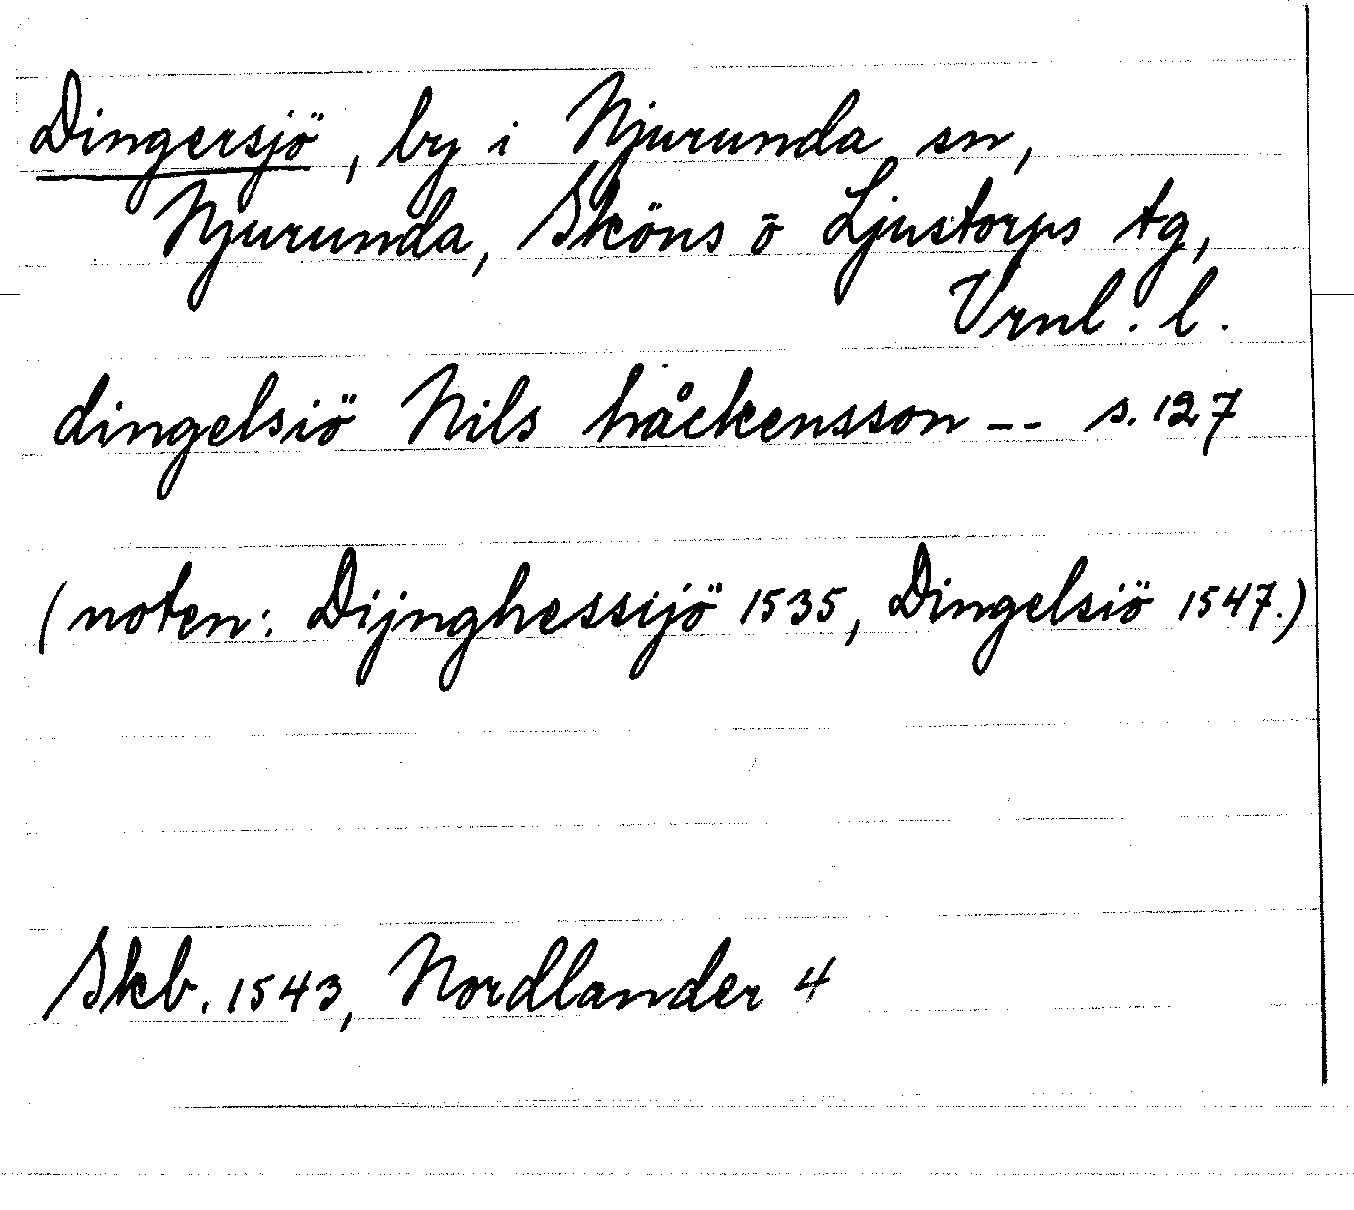 Dingersjö, by i Njurunda sn,
Njurunda, Sköns o Ljustorps tg,
Vrnl. l.
dingelsiö Nils håckensson -- s. 127
(noten: Dijnghessijö 1535, Dingelsiö 1547.)
Skb. 1543, Nordlander 4